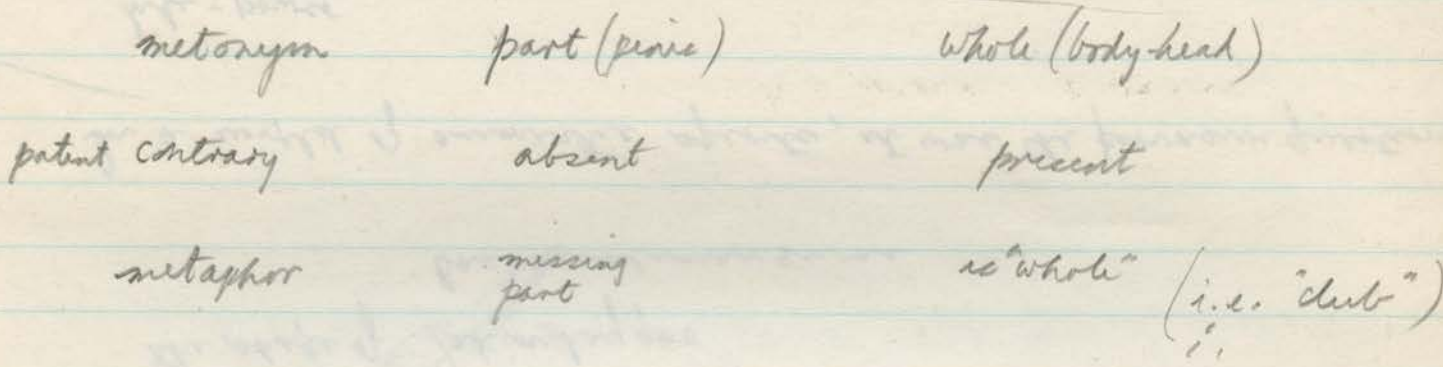 metonym part (penis) whole (body-head)
patent contrary absent present
metaphor missing part as "whole" (i.e. "club")